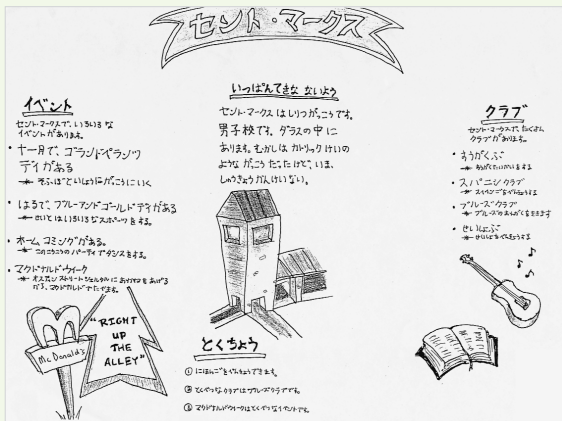 セント・マークス
イベント
セント・マークスで、いろいろな
イベントがあります。
・十一月で、グランドペランツ
デイがある
* そふぼといっしょにがっこうにいく
・はるで、ブルーアンドゴールドデイがある
* せいとはいろいろなスポーツをする。
・ホームコミングがある。
* このこうこうのパーティでダンスをする。
・マクドナルドウィーク
マクドナルドでたべます。
Mc Donald's
"RIGHT
UP
THE
ALLEY"
いっぱんてきな ないよう
セント・マークスはしりつがっこうです。
男子校です。ダラスの中に
あります。むかしは カトリックけいの
ような がっこうだったけど、いま、
しゅうきょうかんけいない。
とくちょう
① にほんごをべんきょうできます。
② とくべつなクラブはブルーズクラブです。
③ マクドナルドウィークはとくべつなイベントです。
クラブ
セント・マークスで、たくさん
クラブがあります。
・すうがくぶ
・スパニシクラブ
* スペインごをべんきょうする
・ブルーズクラブ
* ブルーズのおんがくをききます
・せいしょぶ
* せいしょをべんきょうする